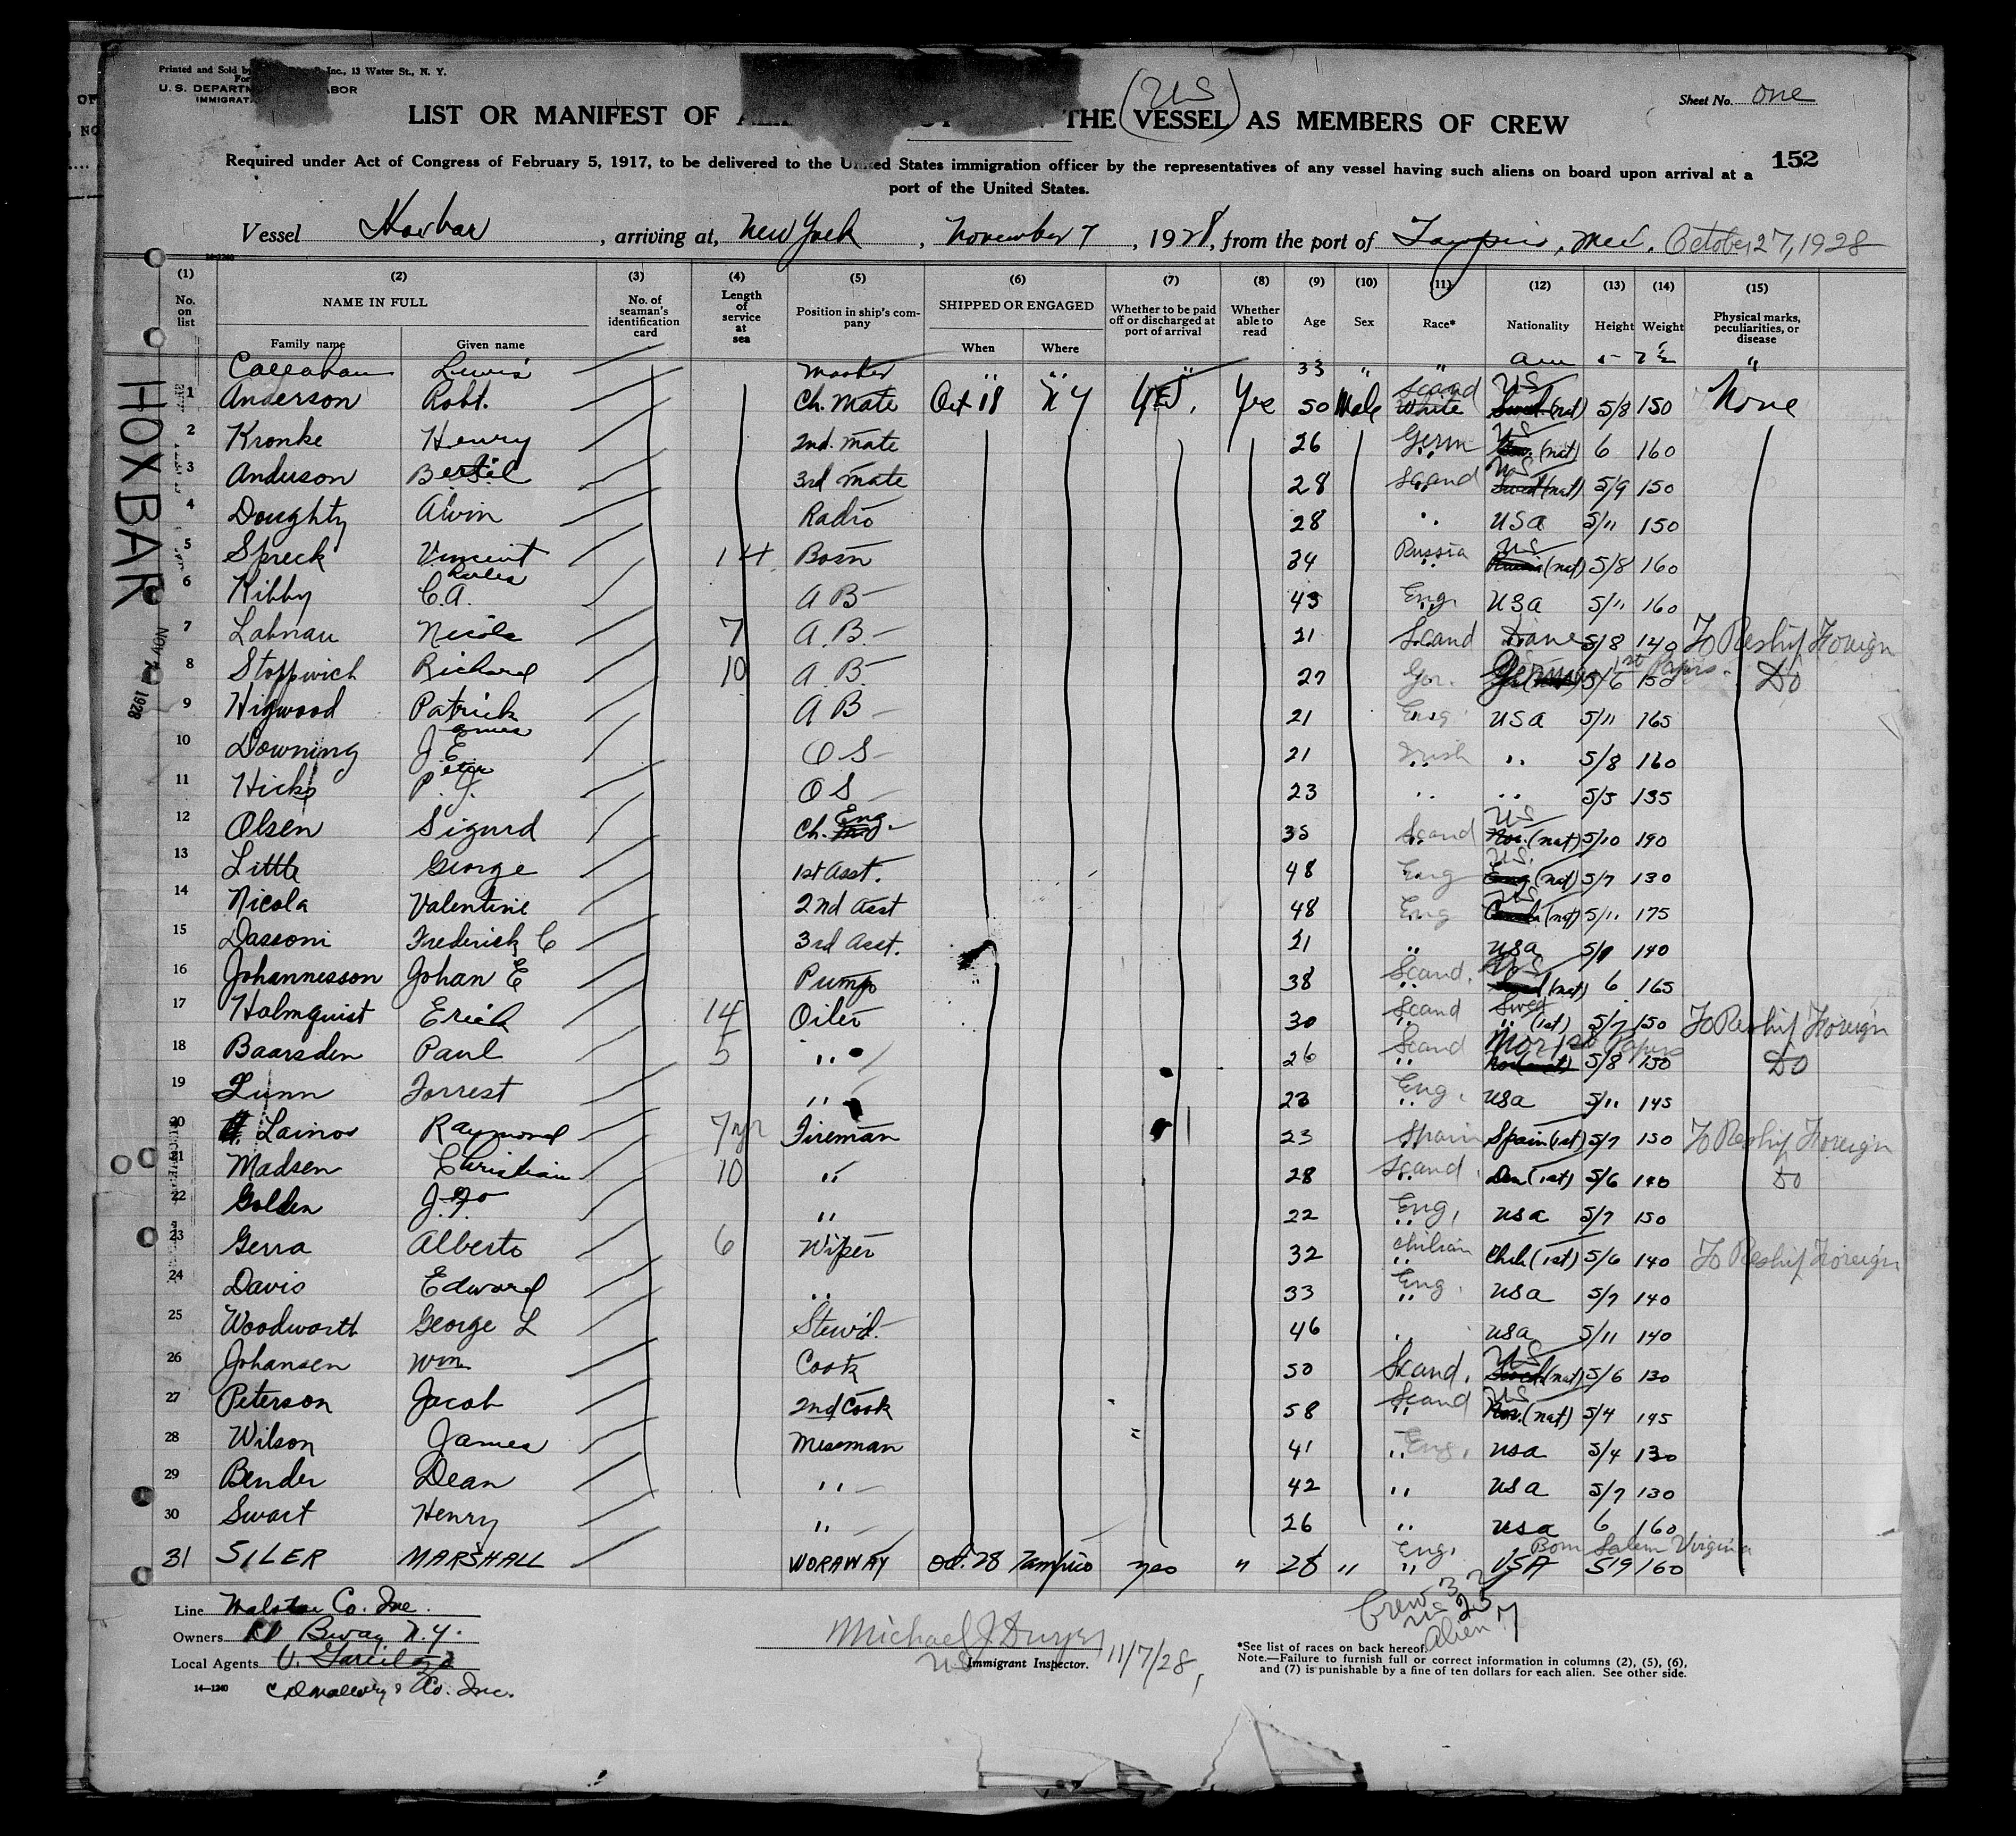 Printed and Sold by Inc., 13 Water St., N. Y.
U. S. DEPARTM ABOR
IMMIGRAT
Sheet No. one
(US)
LIST OR MANIFEST OF THE VESSEL AS MEMBERS OF CREW
152
Required under Act of Congress of February 5, 1917, to be delivered to the United States immigration officer by the representatives of any vessel having such aliens on board upon arrival at a
port of the United States.
Vessel Hoxbar, arriving at, New York, November 7, 1928, from the port of Tampico, Mex. October 27, 1928
(1) (2) (3) (4) (5) (6) (7) (8) (9) (10) (11) (12) (13) (14) (15)
No. on list NAME IN FULL Family name Given name No. of seaman's identification card Length of service at sea Position in ship's company SHIPPED OR ENGAGED When Where Whether to be paid off or discharged at port of arrival Whether able to read Age Sex Race* Nationality Height Weight Physical marks, peculiarities, or disease
Callahan Lewis Master " " " 33 " " am 5- 7½ "
1 Anderson Robt. Ch. Mate Oct 18 NY Yes. Yes 50 Male Scand White US (nat) 5/8 150 None
2 Kronke Henry 2nd. Mate 26 Germ US (nat) 6 160
3 Anderson Bertil 3rd Mate 28 Scand US Swed (nat) 5/9 150
4 Doughty Alvin Radio 28 " USA 5/11 150
5 Spreck Vincent 14 Bosn 34 Russia US Russia (nat) 5/8 160
6 Kibby C.A. AB 43 Eng. USA 5/11 160
7 Lahnau Nicola 7 A.B. 21 Scand Dane 5/8 140 To Reship Foreign
8 Stoppwich Richard 10 A.B. 27 Ger. German 1st Papers. 5/6 150 Do
9 Higwood Patrick AB 21 Eng USA 5/11 165
10 Downing J.E. James OS 21 Irish " 5/8 160
11 Hicks P.J. Peter OS 23 " " 5/5 135
12 Olsen Sigurd Ch. Eng. 35 Scand US Nor. (nat) 5/10 190
13 Little George 1st Asst. 48 Eng US. Eng (nat) 5/7 130
14 Nicola Valentine 2nd Asst 48 Eng US Canada (nat) 5/11 175
15 Dassoni Frederick C 3rd Asst. 21 " USA 5/9 140
16 Johannesson Johan E Pump 38 Scand. US (nat) 6 165
17 Holmquist Erick 14 Oiler 30 Scand Swed " (1st) 5/7 150 To Reship Foreign
18 Baarsden Paul 5 " 26 Scand Nor 1st Papers 5/8 150 Do
19 Lunn Forrest " 23 Eng. USA 5/11 145
20 Lainos Raymond 7 yr Fireman 23 Spain Spain (1st) 5/7 150 To Reship Foreign
21 Madsen Christian 10 " 28 Scand. Den (1st) 5/6 140 Do
22 Golden J. " 22 Eng. USA 5/7 150
23 Gerra Alberto 6 Wiper 32 Chilian Chile (1st) 5/6 140 To Reship Foreign
24 Davis Edward " 33 Eng. USA 5/7 140
25 Woodworth George L Stew'd. 46 " USA 5/11 140
26 Johansen Wm. Cook 50 Scand. US Swed (nat) 5/6 130
27 Peterson Jacob 2nd Cook 58 Scand US Nor. (nat) 5/4 145
28 Wilson James Messman 41 Eng. USA 5/4 130
29 Bender Dean " 42 " USA 5/7 130
30 Swart Henry " 26 " USA 6 160
31 SILER MARSHALL WORAWAY Oct. 28 Tampico yes " 28 " Eng. USA Born Salem Virginia 5/9 160
HOXBAR
NOV 7 1928
Crew 32
US 25
Alien 7
Line Malston Co. Inc.
Owners Bway N.Y.
Local Agents
Co. Inc.
14—1240
Michael J Dwyer 11/7/28,
US Immigrant Inspector.
*See list of races on back hereof.
Note.—Failure to furnish full or correct information in columns (2), (5), (6),
and (7) is punishable by a fine of ten dollars for each alien. See other side.